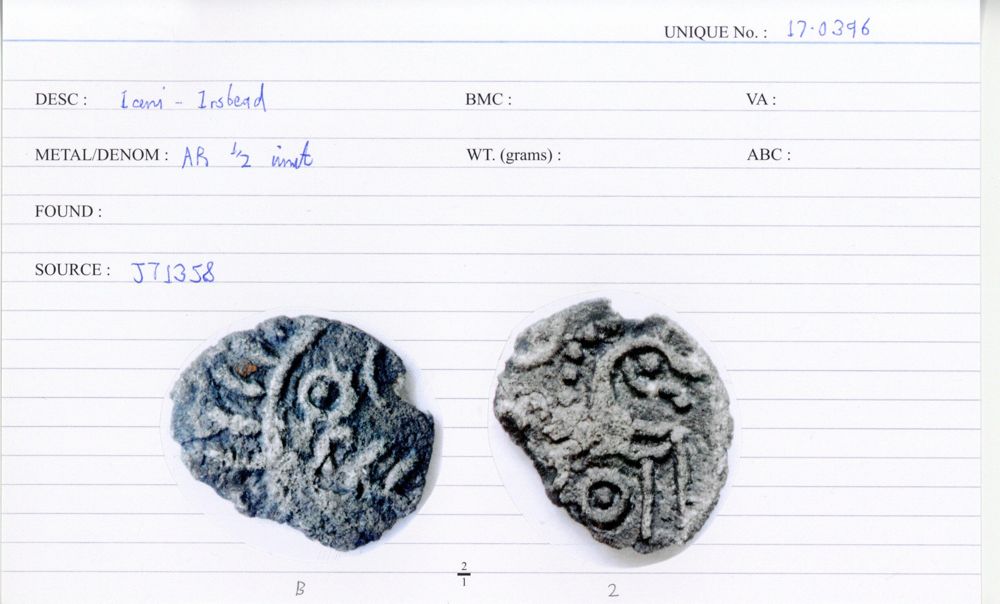 UNIQUE No. : 17.0396
DESC : Iceni - Irstead BMC : VA :
METAL/DENOM : AR 1/2 unit WT. (grams) : ABC :
FOUND :
SOURCE : J71358
2/1
B 2